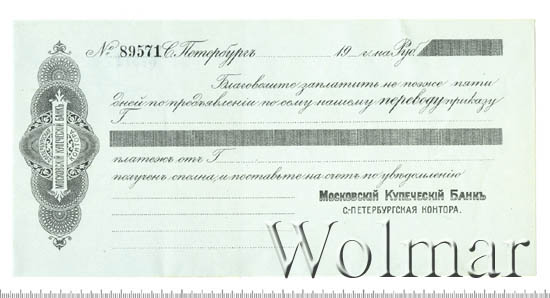 № 89571 С. Петербургъ 19 г. на Руб.
Благоволите заплатить не позже пяти
дней по предъявленіи по сему нашему переводу приказу
Г
платежъ отъ Г
получен сполна, и поставьте на счетъ по увѣдомленію
Московскій Купеческій Банкъ
С-Петербургская Контора.
Московскій Купечески Банкъ
Wolmar